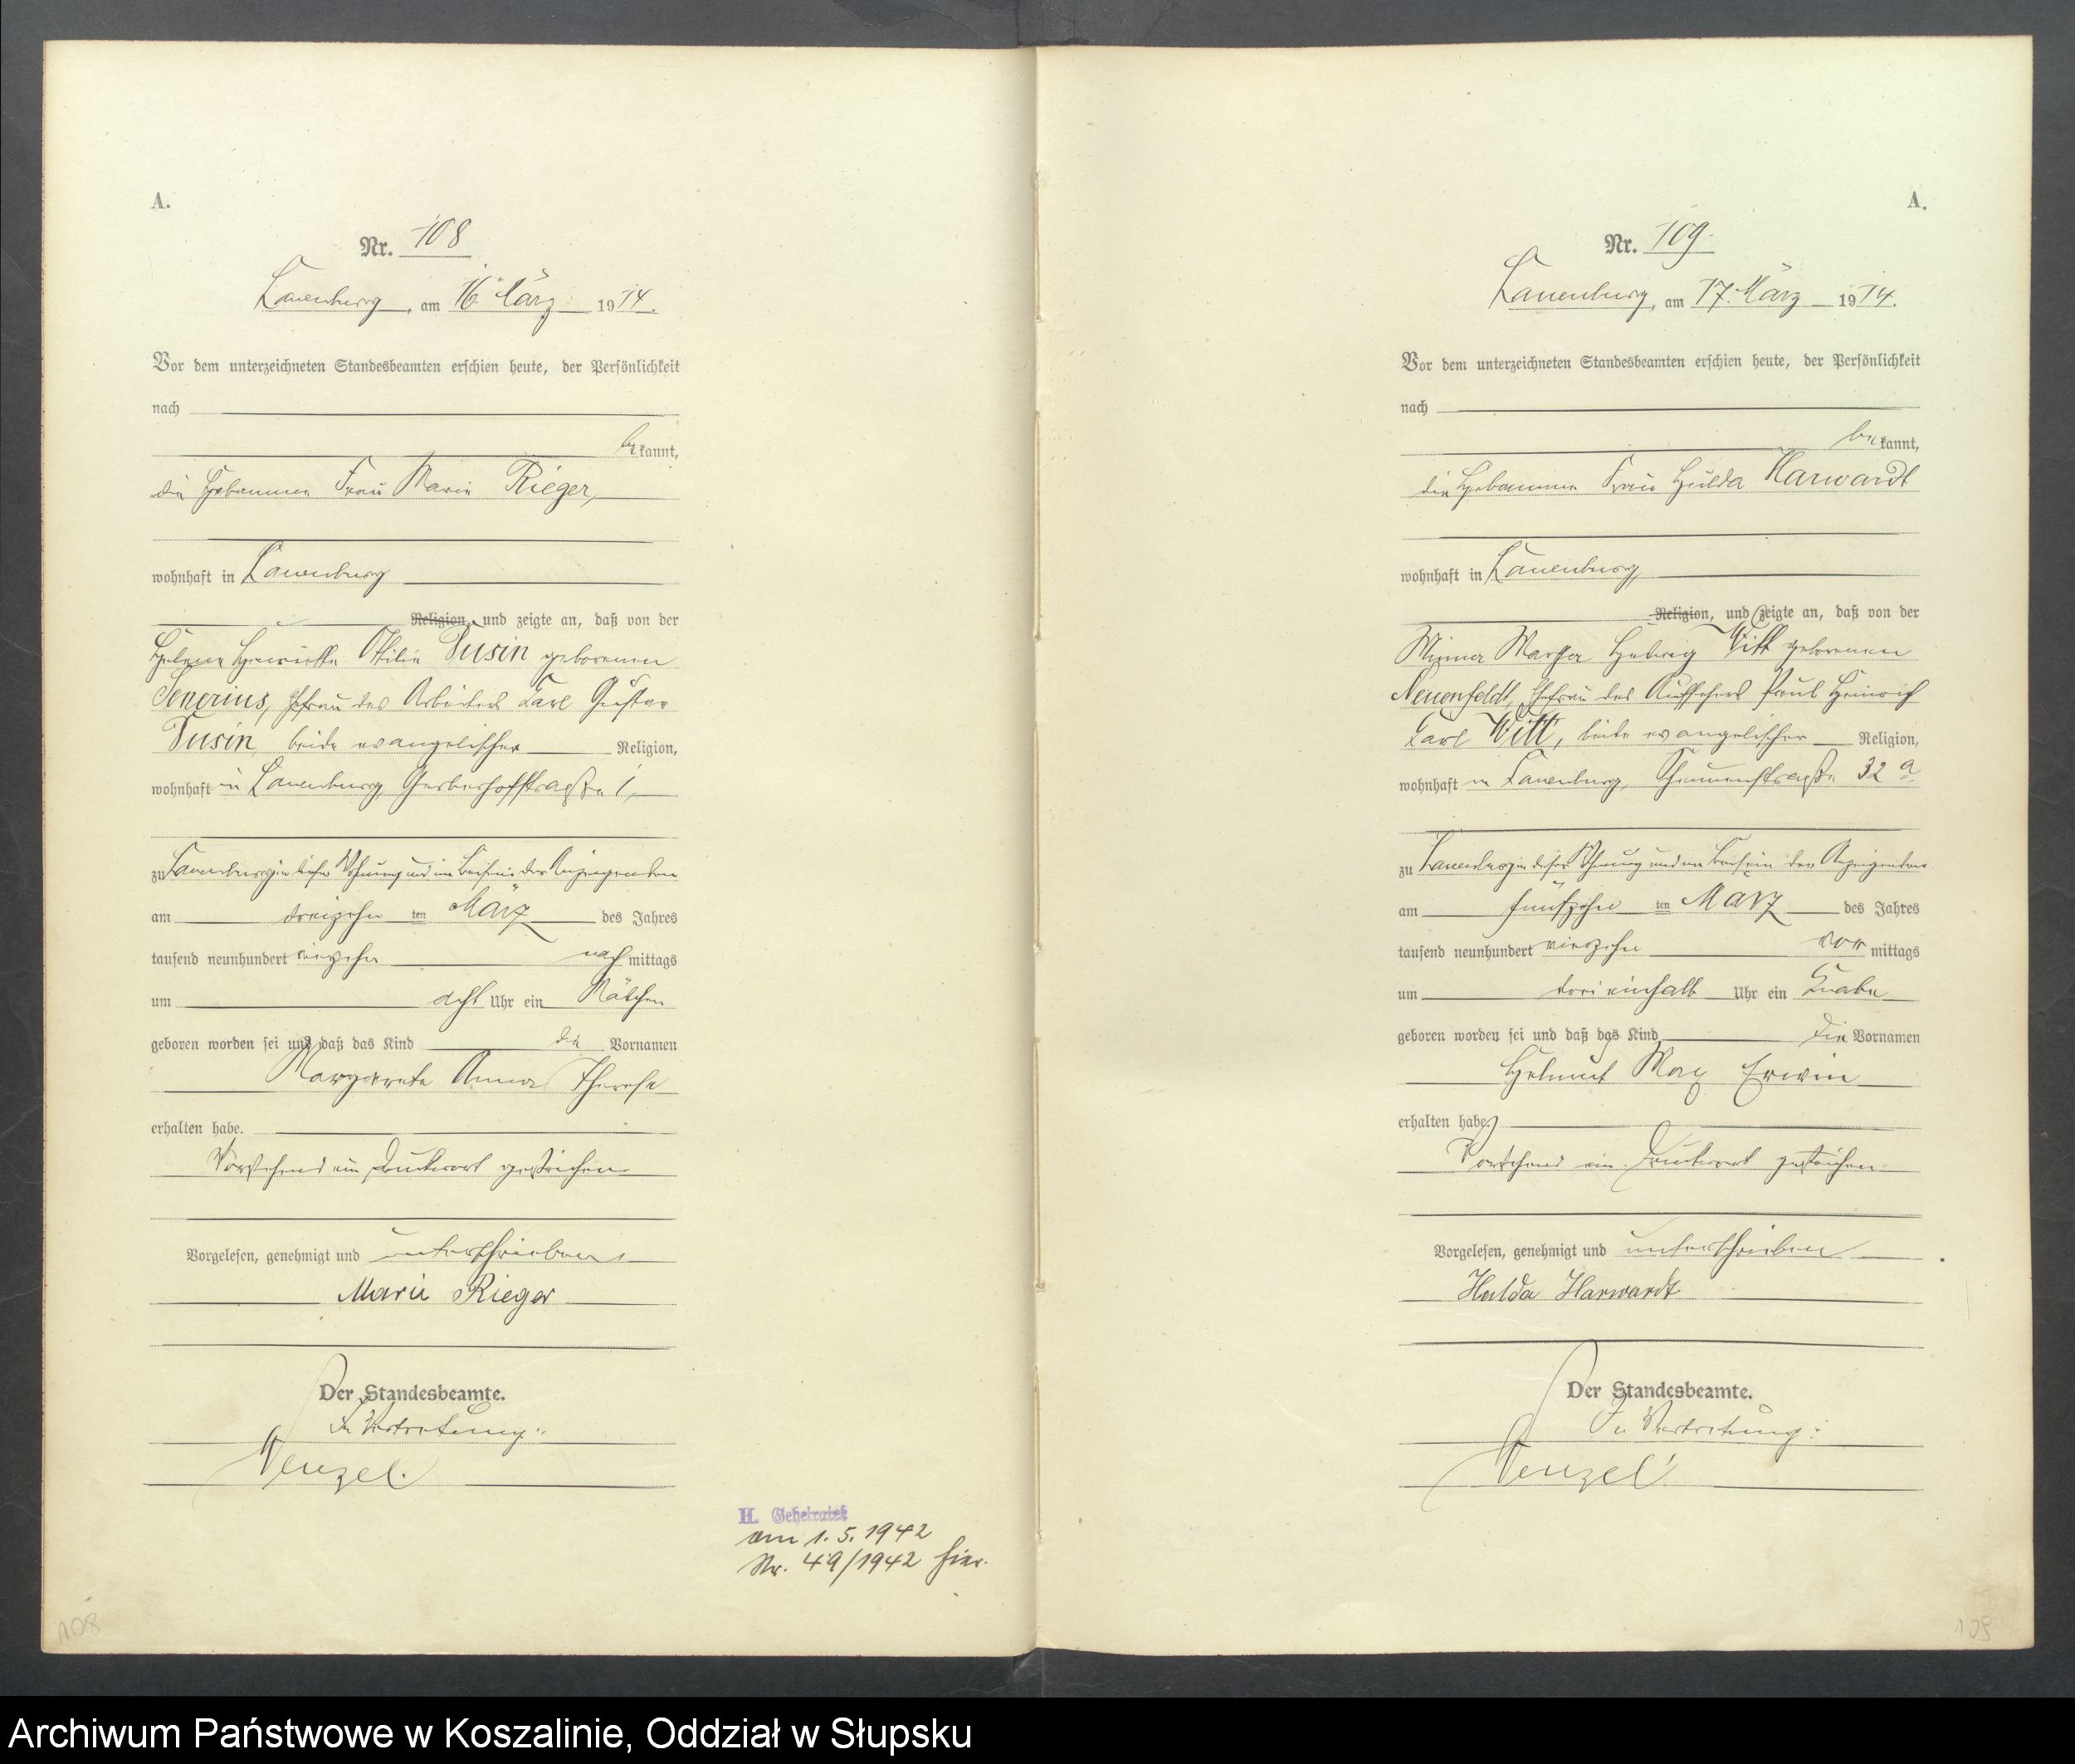 A.
Nr. 108
Lauenburg, am 16. März 1914.
Vor dem unterzeichneten Standesbeamten erschien heute, der Persönlichkeit
nach
bekannt,
die Hebamme Frau Marie Rieger,
wohnhaft in Lauenburg
Religion, und zeigte an, daß von der
Helene Henriette Ottilie Tusin geborenen
Ehefrau des Arbeiters Carl Gustav
Tusin, beide evangelischer Religion,
wohnhaft in Lauenburg, Gerberhofstraße 1,
zu Lauenburg in dieser Wohnung und im Beisein der Anzeigenden
am dreizehnten März des Jahres
tausend neunhundert vierzehn nachmittags
um acht Uhr ein Mädchen
geboren worden sei und daß das Kind die Vornamen
Margarete Anna Therese
erhalten habe.
Vorstehend ein Druckwort gestrichen
Vorgelesen, genehmigt und unterschrieben
Marie Rieger
Der Standesbeamte.
In Vertretung:
Wenzel.
H. Geheiratet
am 1. 5. 1942
Nr. 49/1942 hier.
108
A.
Nr. 109.
Lauenburg, am 17. März 1914.
Vor dem unterzeichneten Standesbeamten erschien heute, der Persönlichkeit
nach
bekannt,
die Hebamme Frau Hulda Harwardt
wohnhaft in Lauenburg,
Religion, und zeigte an, daß von der
Minna Martha Hedwig Witt geborenen
Neuenfeldt, Ehefrau des Aufsehers Paul Heinrich
Carl Witt, beide evangelischer Religion,
wohnhaft in Lauenburg, 32 a
zu Lauenburg in dieser Wohnung und im Beisein der Anzeigenden
am fünfzehnten März des Jahres
tausend neunhundert vierzehn vormittags
um dreieinhalb Uhr ein Knabe
geboren worden sei und daß das Kind die Vornamen
Helmut Max Erwin
erhalten habe.
Vorstehend ein Druckwort gestrichen.
Vorgelesen, genehmigt und unterschrieben
Hulda Harwardt
Der Standesbeamte.
In Vertretung:
Wenzel.
109
Archiwum Państwowe w Koszalinie, Oddział w Słupsku